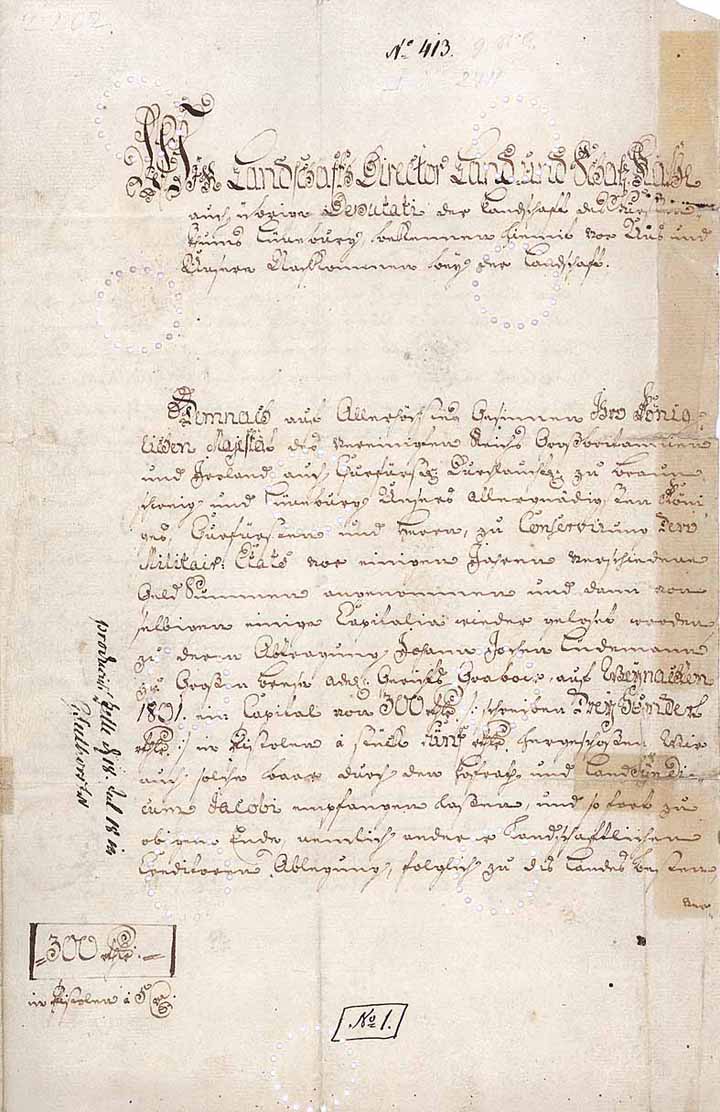 No 413.
Wir Landschafts Director Land und Schatz Räthe
auch übrige Deputati der Landschaft des Fürsten
thums Lüneburg, bekennen hiemit vor Uns und
Unsere Nachkommen bey der Landschaft.
Demnach auf Allerhöchstes Gesinnen Ihro König-
lichen Majestät des Vereinigten Reichs Großbritannien
und Irland, auch Churfürstl. Durchlaucht zu Braun
schweig und Lüneburg Unsers Allergnädigsten Köni
ges, Churfürsten und Herrn, zu Conservirung Dero
Militair: Etats vor einigen Jahren verschiedene
Geld Summen angenommen und dann von
selbigen einige Capitalia wieder gelöset worden
zu deren Abtragung Johann Lindemann
zu Großen adel: Gerichts auf Weynachten
1801. ein Capital von 300 rthlr /: schreiben Drey Hundert
rthlr :/ in Pistolen à Stück fünf rthlr hergeschossen Wir
auch solche baar durch den Hofrath und Land Syndi
cum Jacobi empfangen lassen, und so fort zu
obigem Ende, nemlich anderer Landschaftlichen
Creditoren Ablegung, folglich zu des Landes Besten
ver-
Celle 18 Jul 18
300 rthlr.
in Pistolen à 5 rthlr.
No 1.